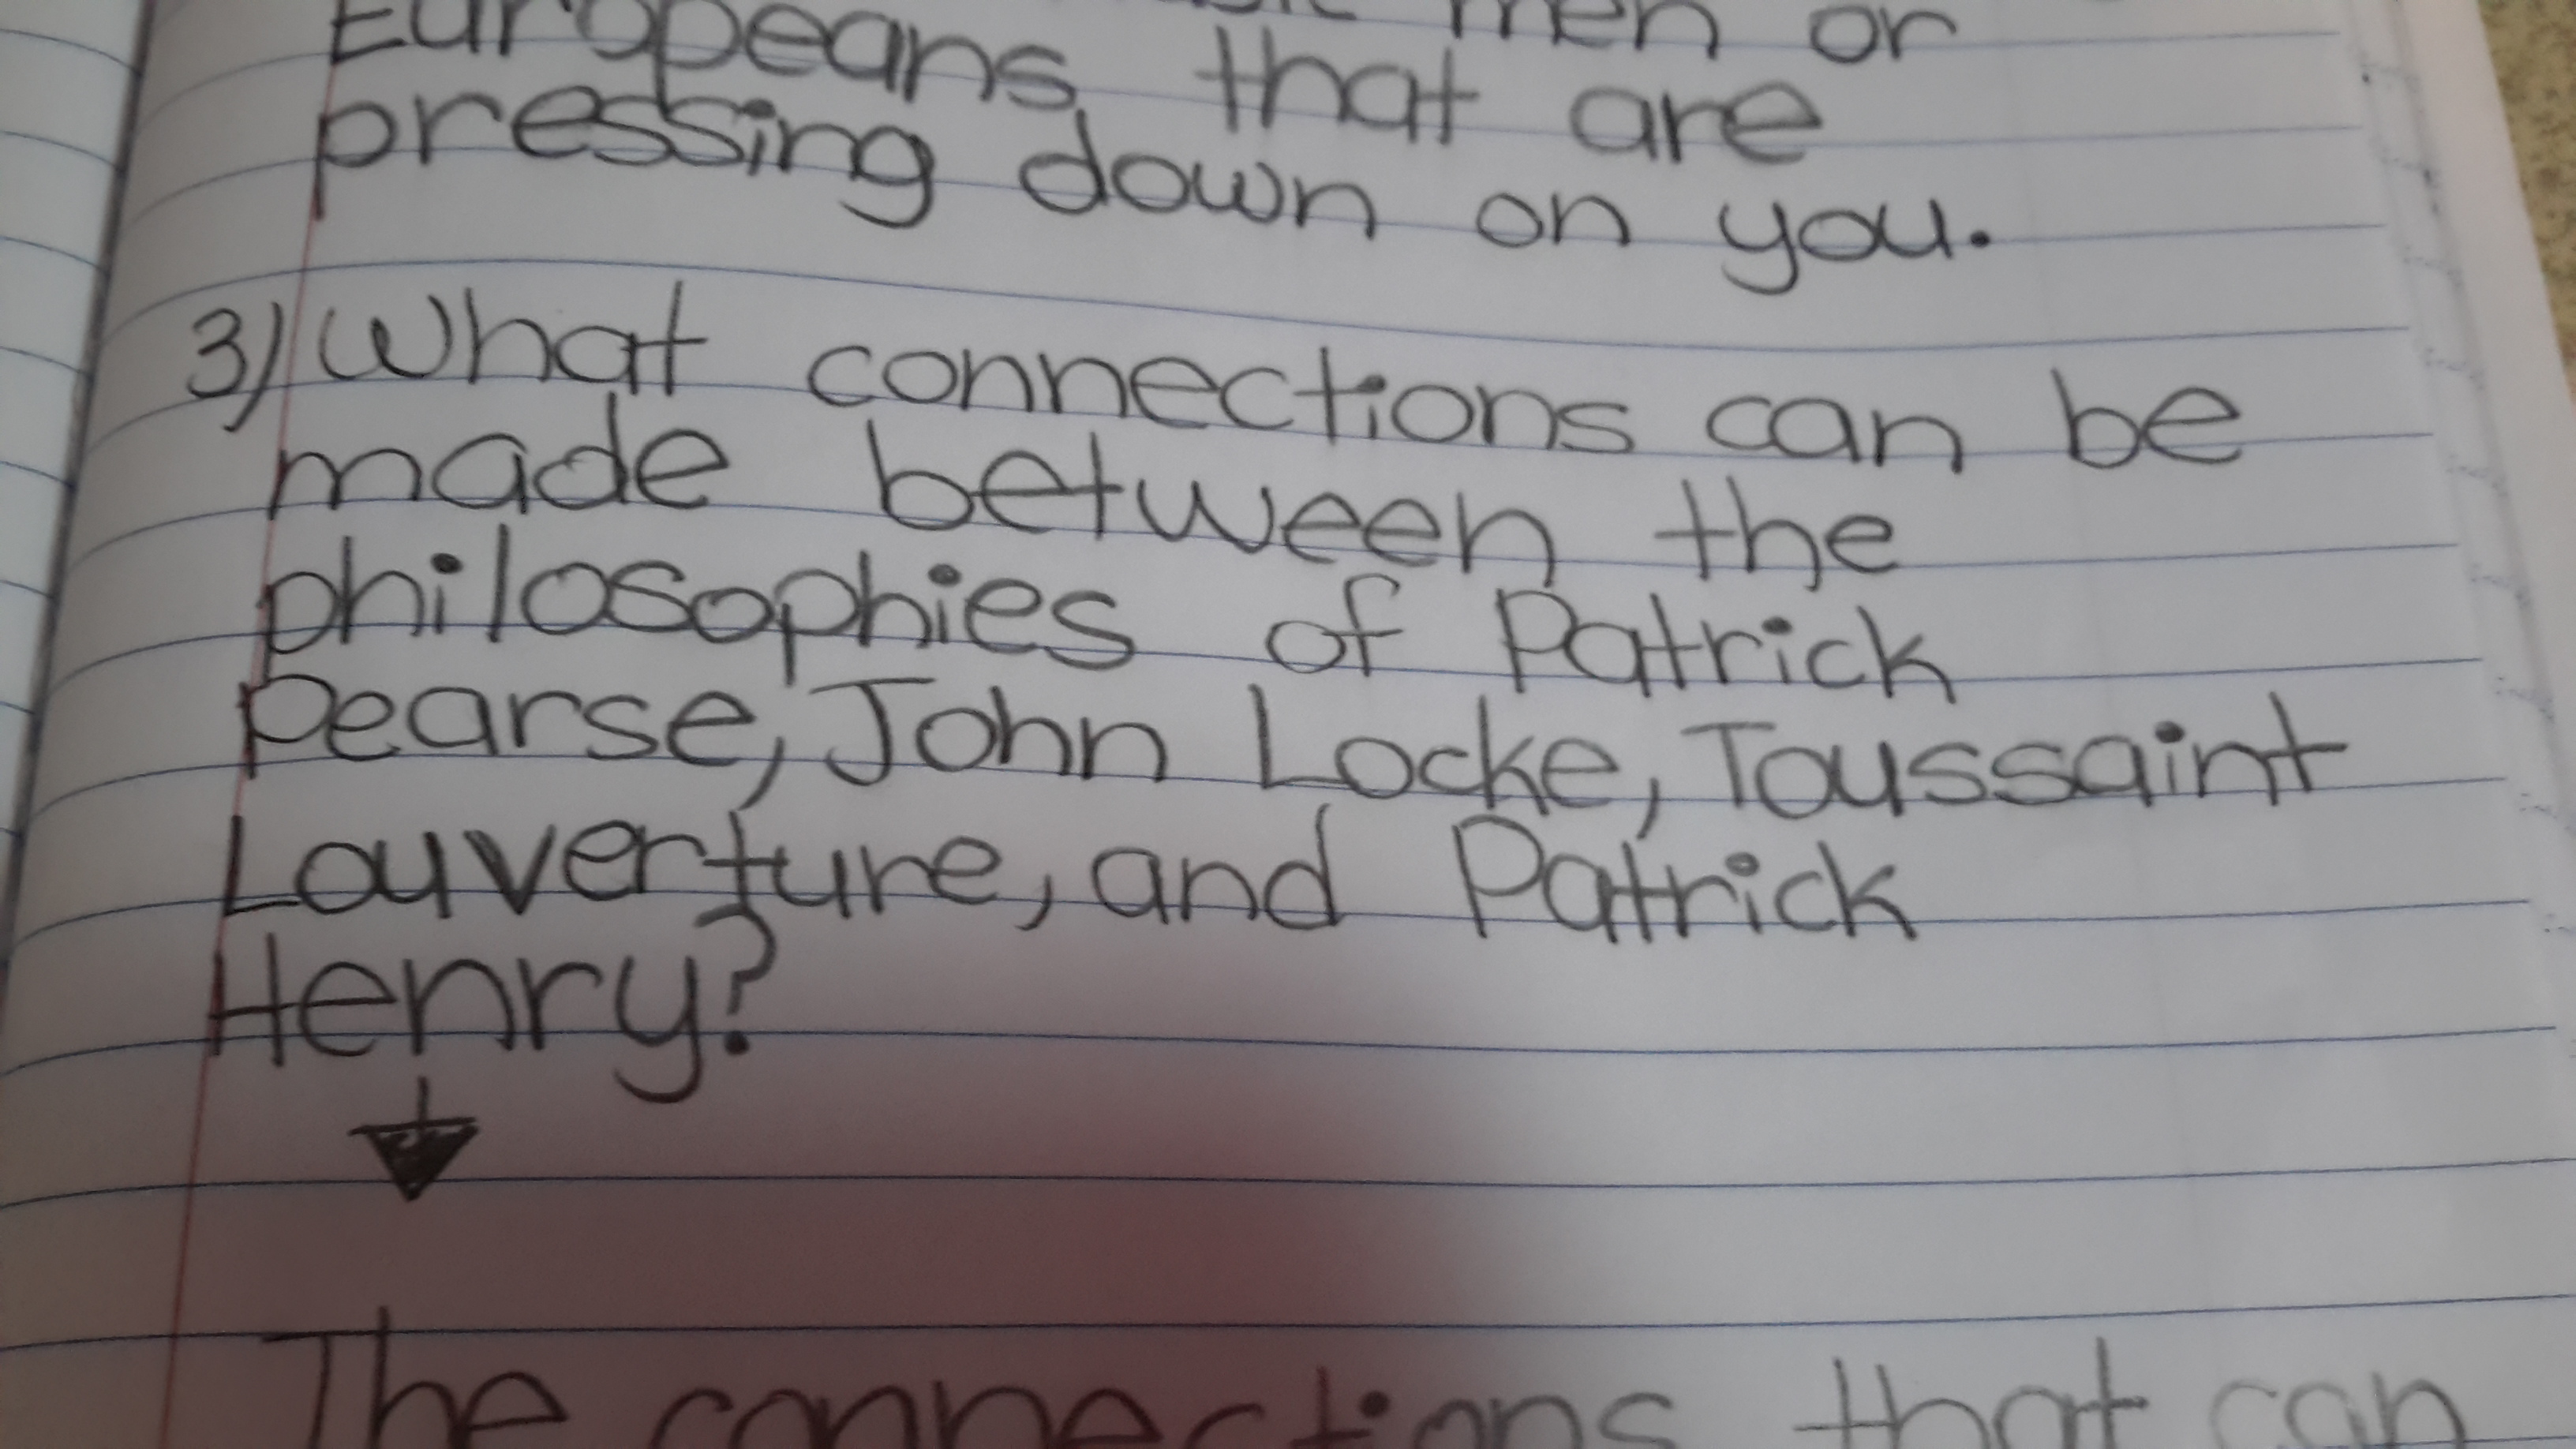 men or
Europeans that are
pressing down on you.
3) What connections can be
made between the
philosophies of Patrick
Pearse, John Locke, Toussaint
Louverture, and Patrick
Henry?
The connections that can